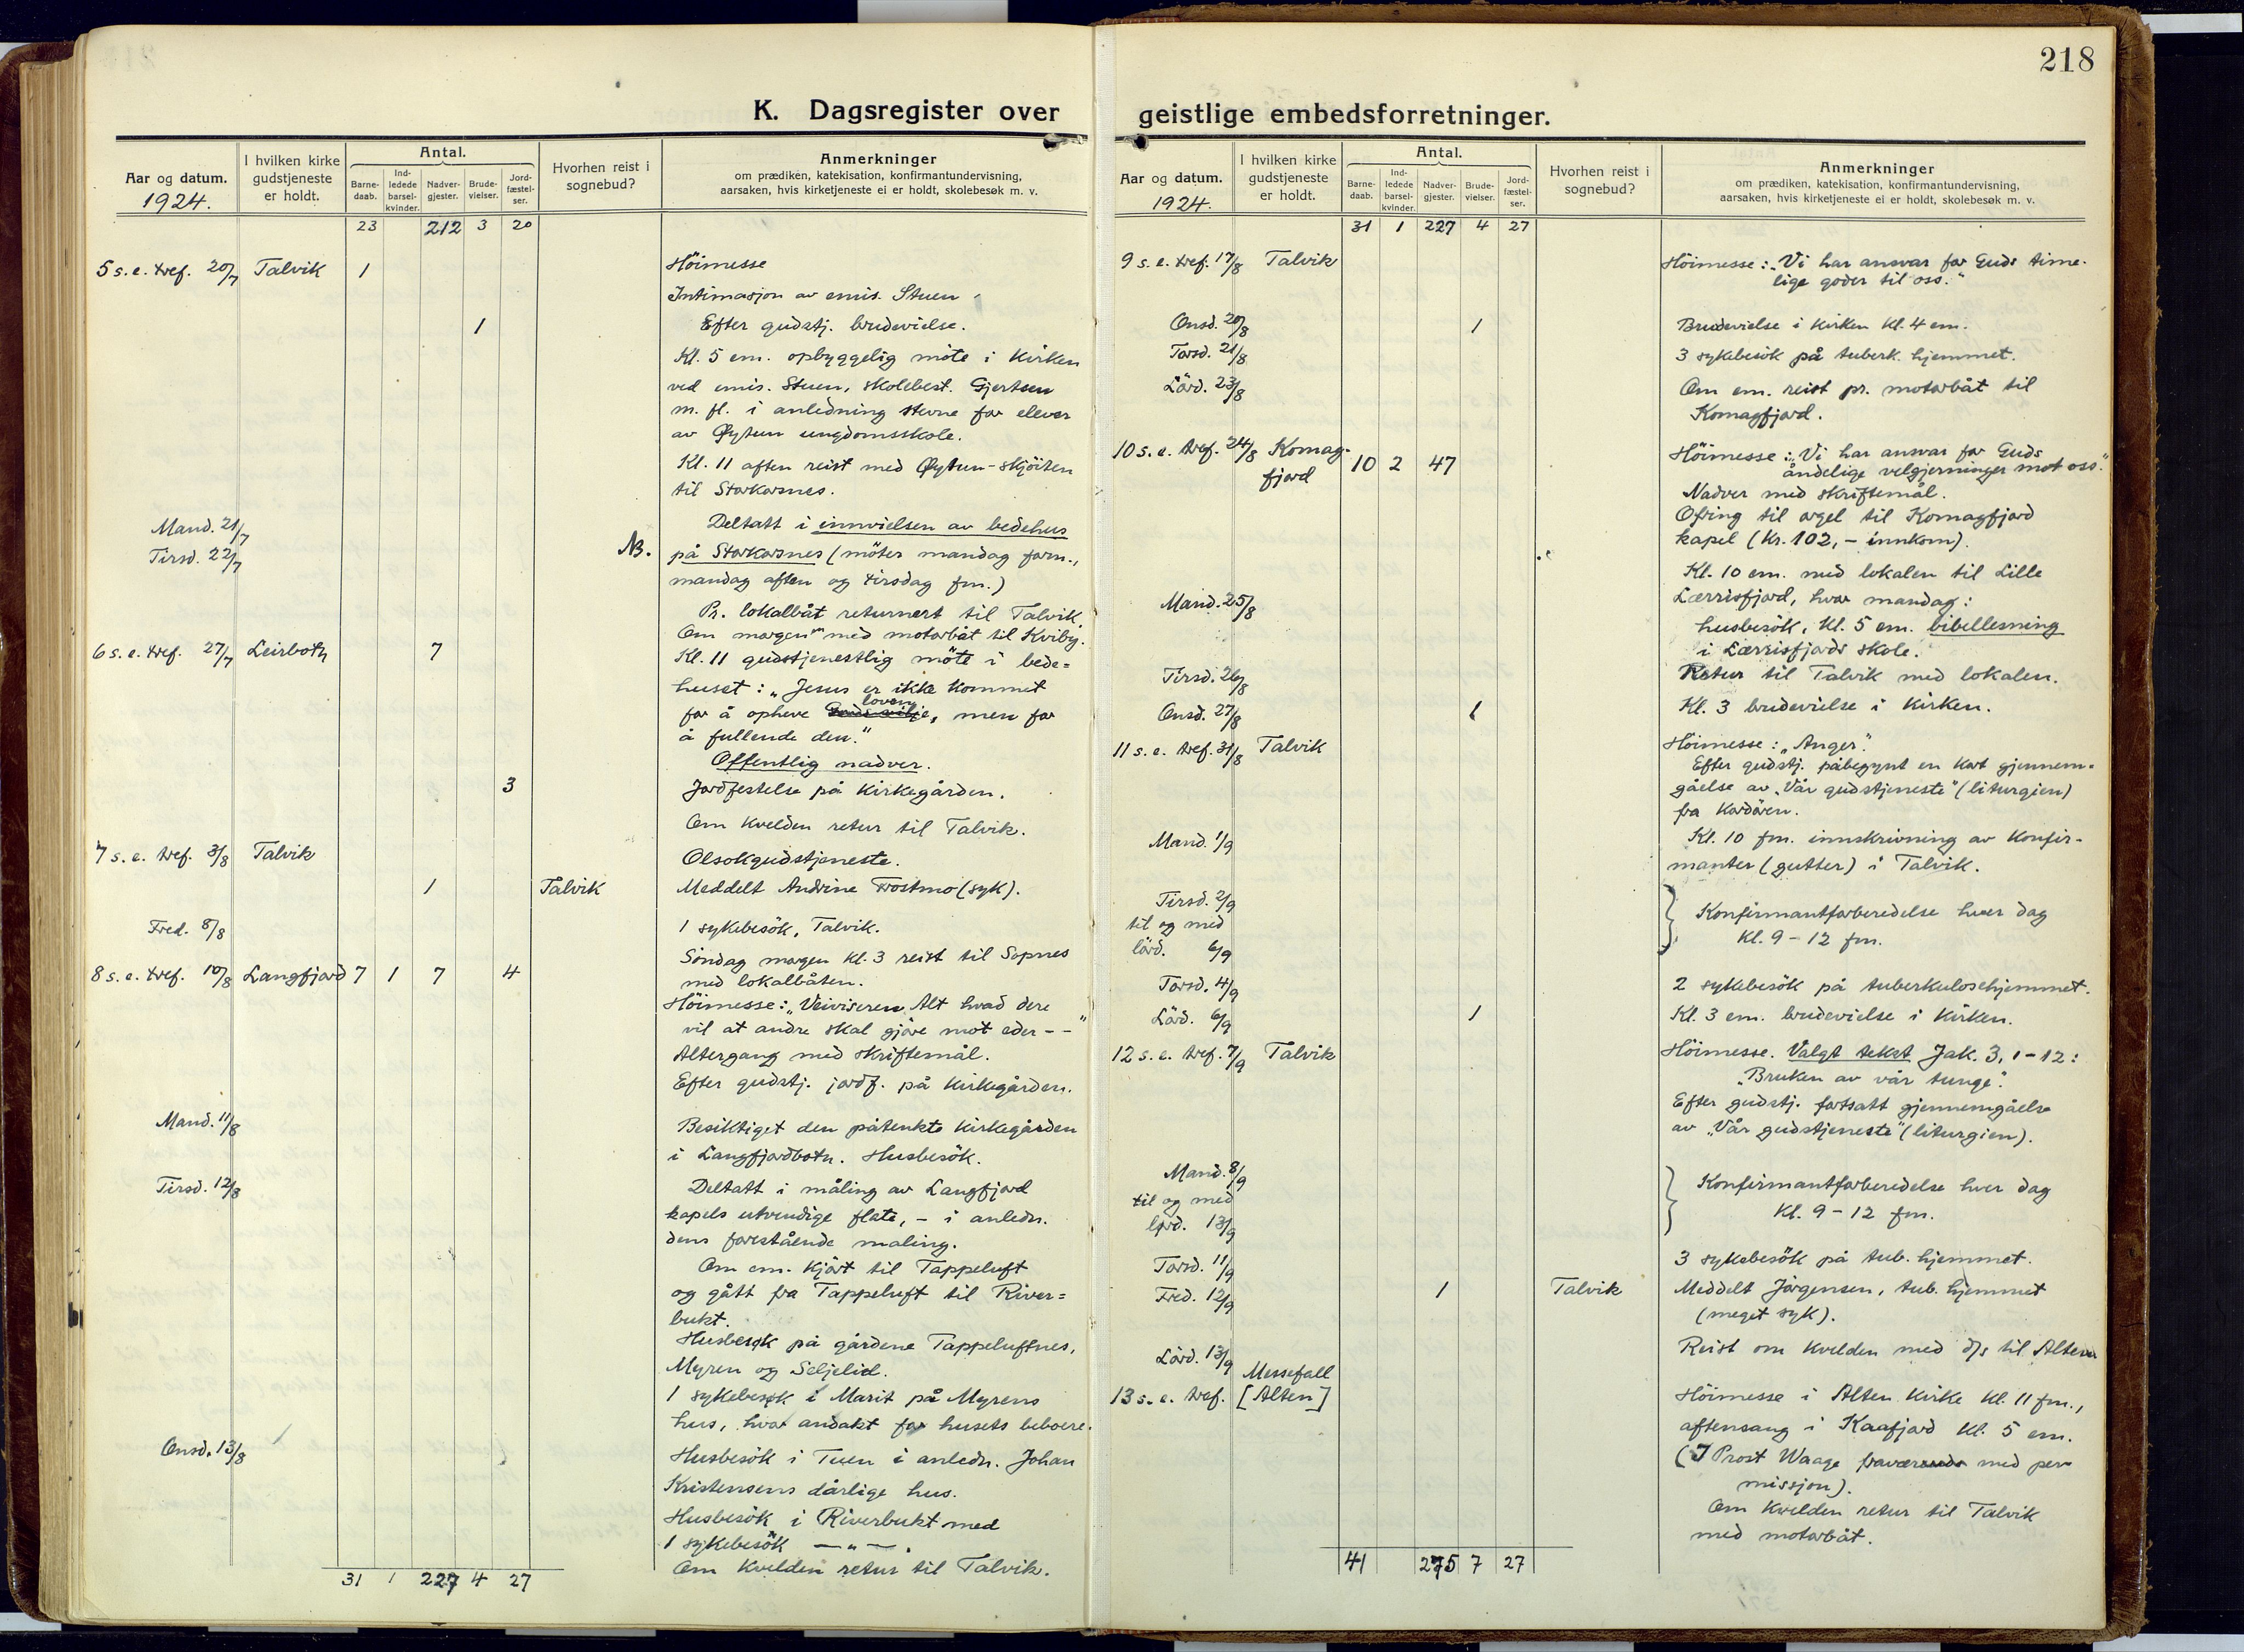 218
K. Dagsregister over
Aar og datum.
1924.
I hvilken kirke
gudstjeneste
er holdt.
Antal.
Barne-
daab.
Ind-
ledede
barsel-
kvinder.
Nadver-
gjester.
Brude-
vielser.
Jord-
fæstel-
ser.
Hvorhen reist i
sognebud?
Anmerkninger
om prædiken, katekisation, konfirmantundervisning,
aarsaken, hvis kirketjeneste ei er holdt, skolebesøk m. v.
23 212 3 20
5 s. e. tref. 20/7 Talvik 1 Höimesse
Intimasjon av emis. Stuen
1 Efter gudstj. brudevielse.
Kl. 5 em. opbyggelig möte i kirken
ved emis. Stuen, skolebest. Gjertsen
m. fl. i anledning stevne for elever
av Øytun ungdomsskole.
Kl. 11 aften reist med Øytun-skjöiten
til Storkorsnes.
Mand. 21/7 Deltatt i innvielsen av bedehus
Tirsd. 22/7 NB. på Storkorsnes (möter mandag form.,
mandag aften og tirsdag fm.)
Pr. lokalbåt returnert til Talvik.
Om morgen med motorbåt til Kviby.
6 s. e. tref. 27/7 Leirbotn 7 Kl. 11 gudstjenestlig möte i bede=
huset: „Jesus er ikke kommet
for å opheve Guds vilje loven, men for
å fullende den."
Offentlig nadver.
3 Jordfestelse på kirkegården.
Om kvelden retur til Talvik.
7 s. e. tref. 3/8 Talvik Olsokgudstjeneste.
1 Talvik Meddelt Andrine Frostmo (syk).
Fred. 8/8 1 sykebesök, Talvik.
Söndag morgen kl. 3 reist til Sopnes
med lokalbåten.
8 s. e. tref. 10/8 Langfjord 7 1 7 4 Höimesse: „Veiviseren. Alt hvad dere
vil at andre skal gjöre mot eder - - "
Altergang med skriftemål.
Efter gudstj. jordf. på kirkegården.
Mand. 11/8 Besiktiget den påtenkte kirkegården
i Langfjordbotn. Husbesök.
Tirsd. 12/8 Deltatt i måling av Langfjord
kapels utvendige flate, - i anledn.
dens forestående maling.
Om em. kjört til Tappeluft
og gått fra Tappeluft til River=
bukt.
Husbesøk på gårdene Tappeluftnes,
Myren og Seljelid.
1 sykebesøk i Marit på Myrens
hus, hvor andakt for husets beboere.
Onsd. 13/8 Husbesök i Tuen i anledn. Johan
Kristensens dårlige hus.
Husbesök i Riverbukt med
1 sykebesök — " — .
Om kvelden retur til Talvik.
31 1 227 4 27
geistlige embedsforretninger.
Aar og datum.
1924.
I hvilken kirke
gudstjeneste
er holdt.
Antal.
Barne-
daab.
Ind-
ledede
barsel-
kvinder.
Nadver-
gjester.
Brude-
vielser.
Jord-
fæstel-
ser.
Hvorhen reist i
sognebud?
Anmerkninger
om prædiken, katekisation, konfirmantundervisning,
aarsaken, hvis kirketjeneste ei er holdt, skolebesøk m. v.
31 1 227 4 27
9 s. e. tref. 17/8 Talvik Höimesse: „Vi har ansvar for Guds time-
lige goder til oss."
Onsd. 20/8 1 Brudevielse i kirken kl. 4 em.
Torsd. 21/8 3 sykebesök på tuberk. hjemmet.
Lörd. 23/8 Om em. reist pr. motorbåt til
Komagfjord.
10 s. e. tref. 24/8 Komag-
fjord 10 2 47 Höimesse: „Vi har ansvar for Guds
åndelige velgjerninger mot oss."
Nadver med skriftemål.
Ofring til orgel til Komagfjord
kapel (kr. 102,- innkom).
Kl. 10 em. med lokalen til Lille
Mand. 25/8 Lærrisfjord, hvor mandag:
husbesök, kl. 5 em. bibellesning
i Lærrisfjords skole.
Tirsd. 26/8 Retur til Talvik med lokalen.
Onsd. 27/8 1 Kl. 3 brudevielse i kirken.
11 s. e. tref. 31/8 Talvik Höimesse: „Anger".
Efter gudstj. påbegynt en kort gjennem-
gåelse av „Vår gudstjeneste" (liturgien)
fra kordören.
Mand. 1/9 Kl. 10 fm. innskrivning av konfir-
manter (gutter) i Talvik.
Tirsd. 2/9
til og med
lörd. 6/9
Konfirmantforberedelse hver dag
kl. 9 - 12 fm.
Torsd. 4/9 2 sykebesök på tuberkulosehjemmet.
Lörd. 6/9 1 Kl. 3 em. brudevielse i kirken.
12 s. e. tref. 7/9 Talvik Höimesse. Valgt tekst Jak. 3, 1-12:
„Bruken av vår tunge".
Efter gudstj. fortsatt gjennemgåelse
av „Vår gudstjeneste" (liturgien).
Mand. 8/9
til og med
lörd. 13/9
Konfirmantforberedelse hver dag
kl. 9 - 12 fm.
Torsd. 11/9 3 sykebesök på tub. hjemmet.
Fred. 12/9 1 Talvik Meddelt Jörgensen, tub. hjemmet
(meget syk).
Lörd. 13/9 Reist om kvelden med d/s til Alten
Messefall
13 s. e. tref. [Alten] Höimesse i Alten kirke kl. 11 fm.,
aftensang i Kaafjord kl. 5 em.
(Prost Waage fraværende med per
missjon).
Om kvelden retur til Talvik
med motorbåt.
41 275 7 27